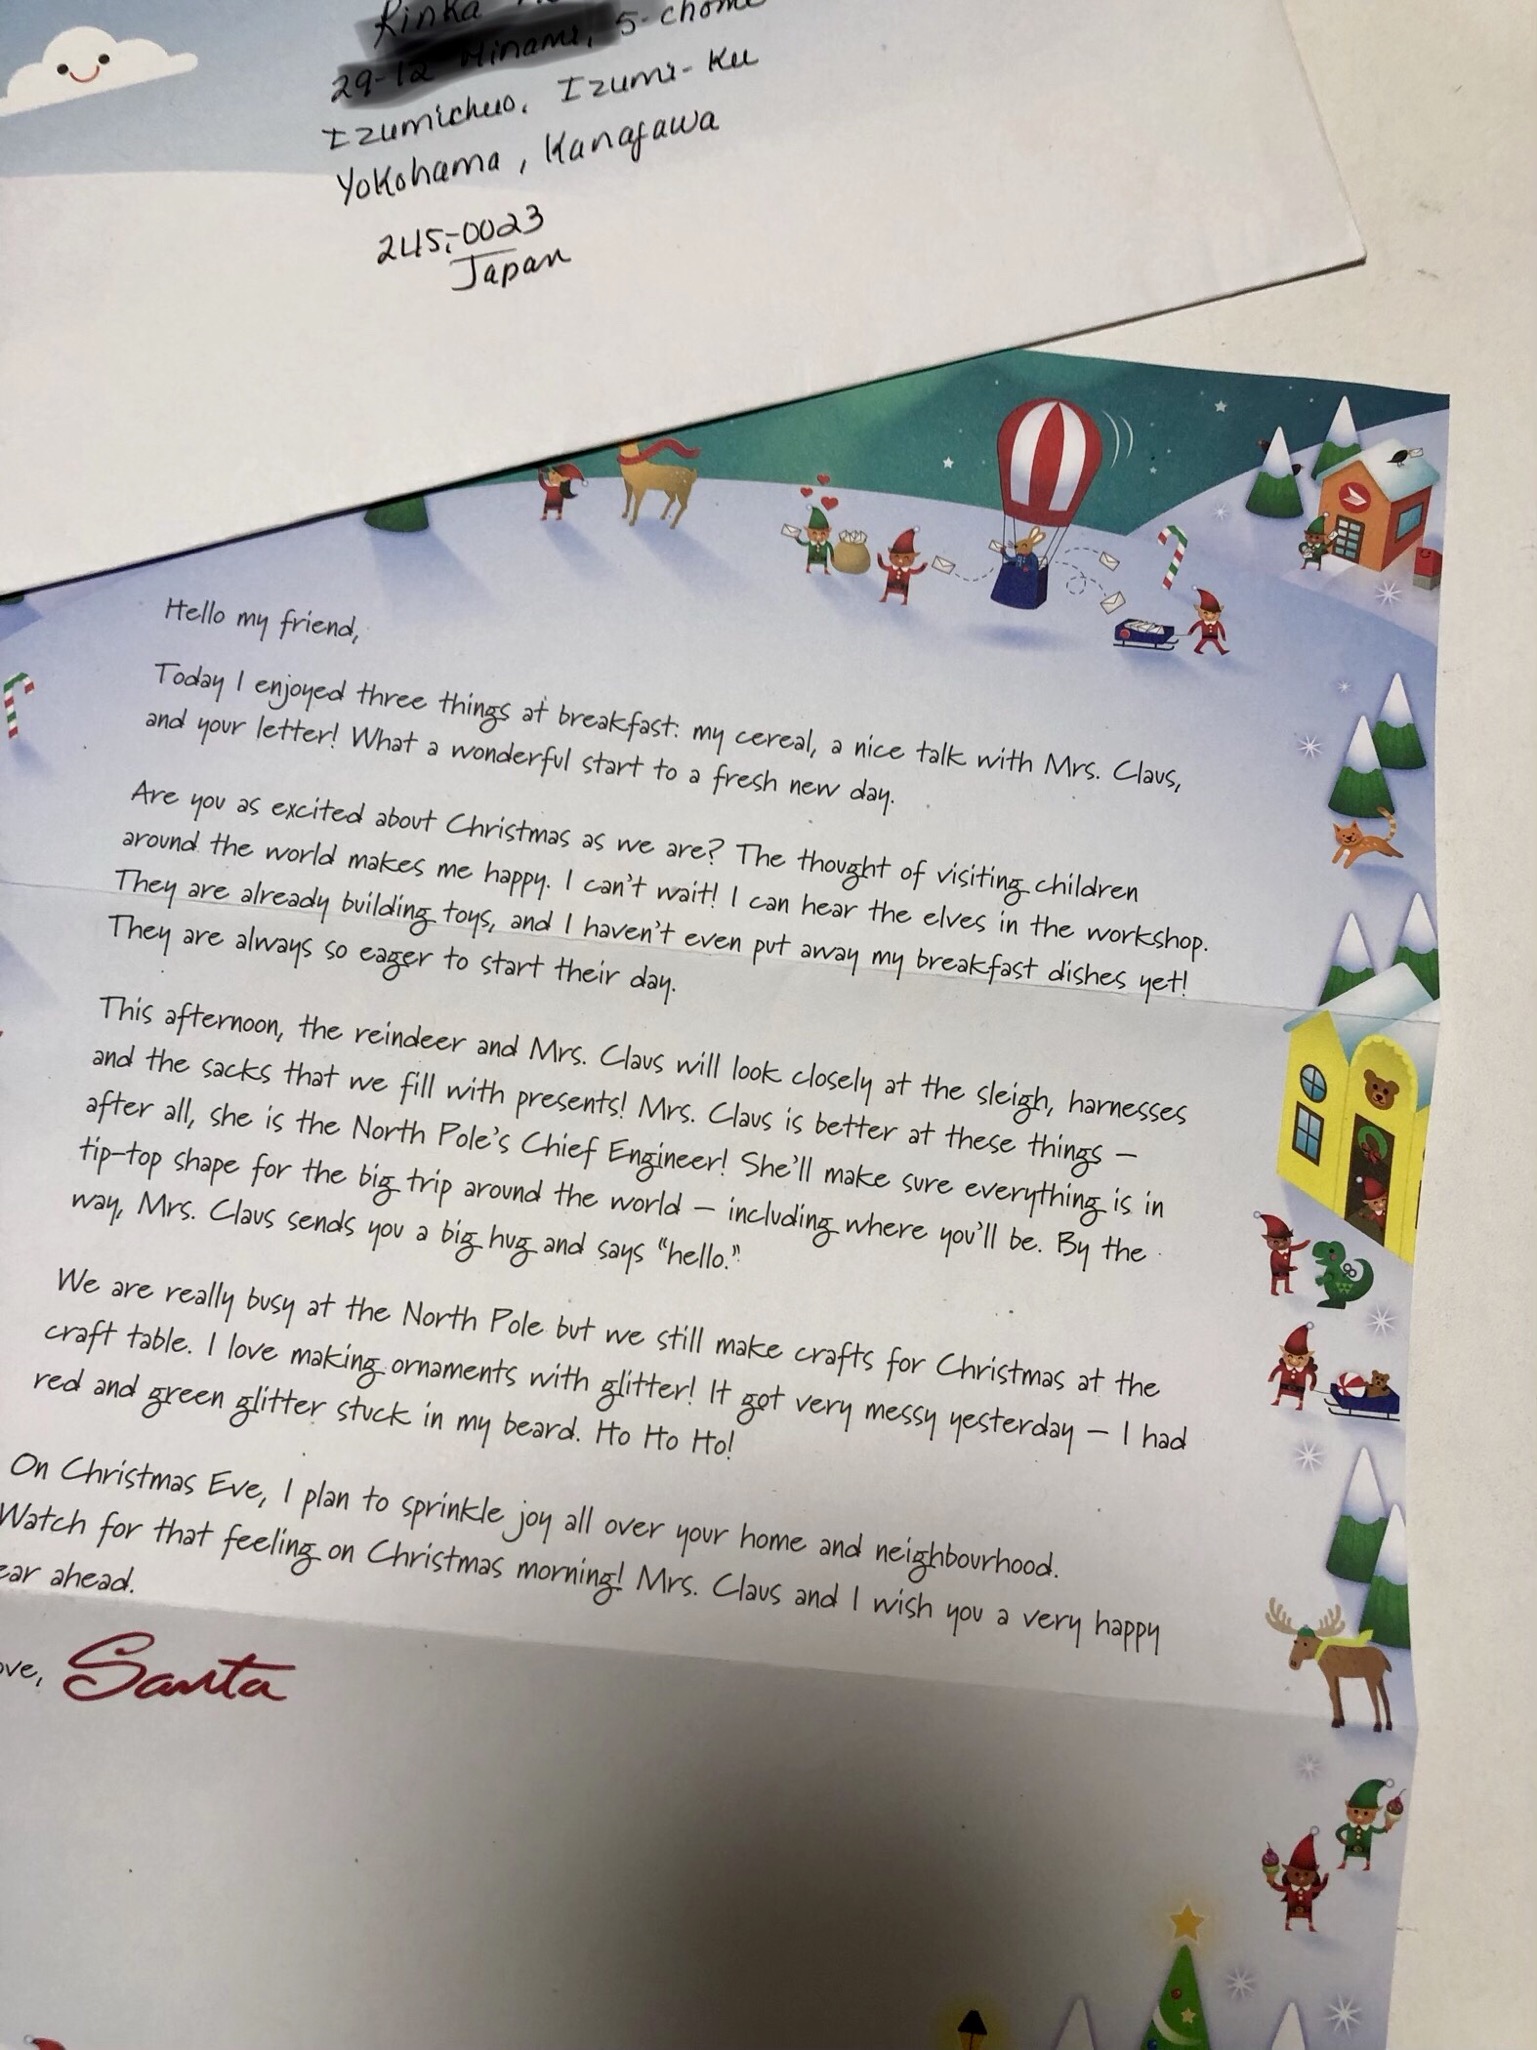 Rinka
5-chome
Izumichuo, Izumi-Ku
Yokohama, Kanagawa
245-0023
Japan
Hello my friend,
Today I enjoyed three things at breakfast: my cereal, a nice talk with Mrs. Claus,
and your letter! What a wonderful start to a fresh new day.
Are you as excited about Christmas as we are? The thought of visiting children
around the world makes me happy. I can't wait! I can hear the elves in the workshop.
They are already building toys, and I haven't even put away my breakfast dishes yet!
They are always so eager to start their day.
This afternoon, the reindeer and Mrs. Claus will look closely at the sleigh, harnesses
and the sacks that we fill with presents! Mrs. Claus is better at these things –
after all, she is the North Pole's Chief Engineer! She'll make sure everything is in
tip-top shape for the big trip around the world – including where you'll be. By the
way, Mrs. Claus sends you a big hug and says "hello."
We are really busy at the North Pole but we still make crafts for Christmas at the
craft table. I love making ornaments with glitter! It got very messy yesterday – I had
red and green glitter stuck in my beard. Ho Ho Ho!
On Christmas Eve, I plan to sprinkle joy all over your home and neighbourhood.
Watch for that feeling on Christmas morning! Mrs. Claus and I wish you a very happy
ear ahead.
ove, Santa